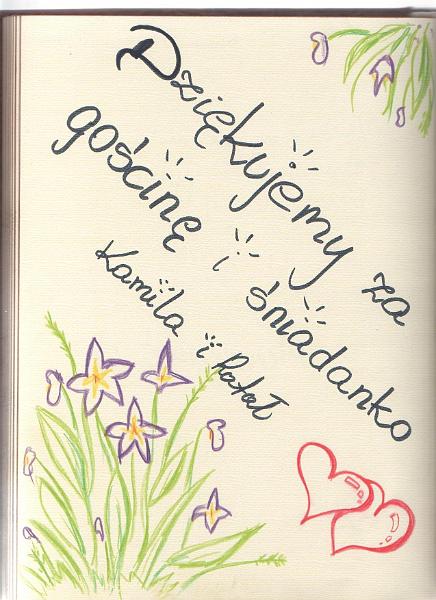 Dziękujemy za
gościnę i śniadanko
Kamila i Rafał